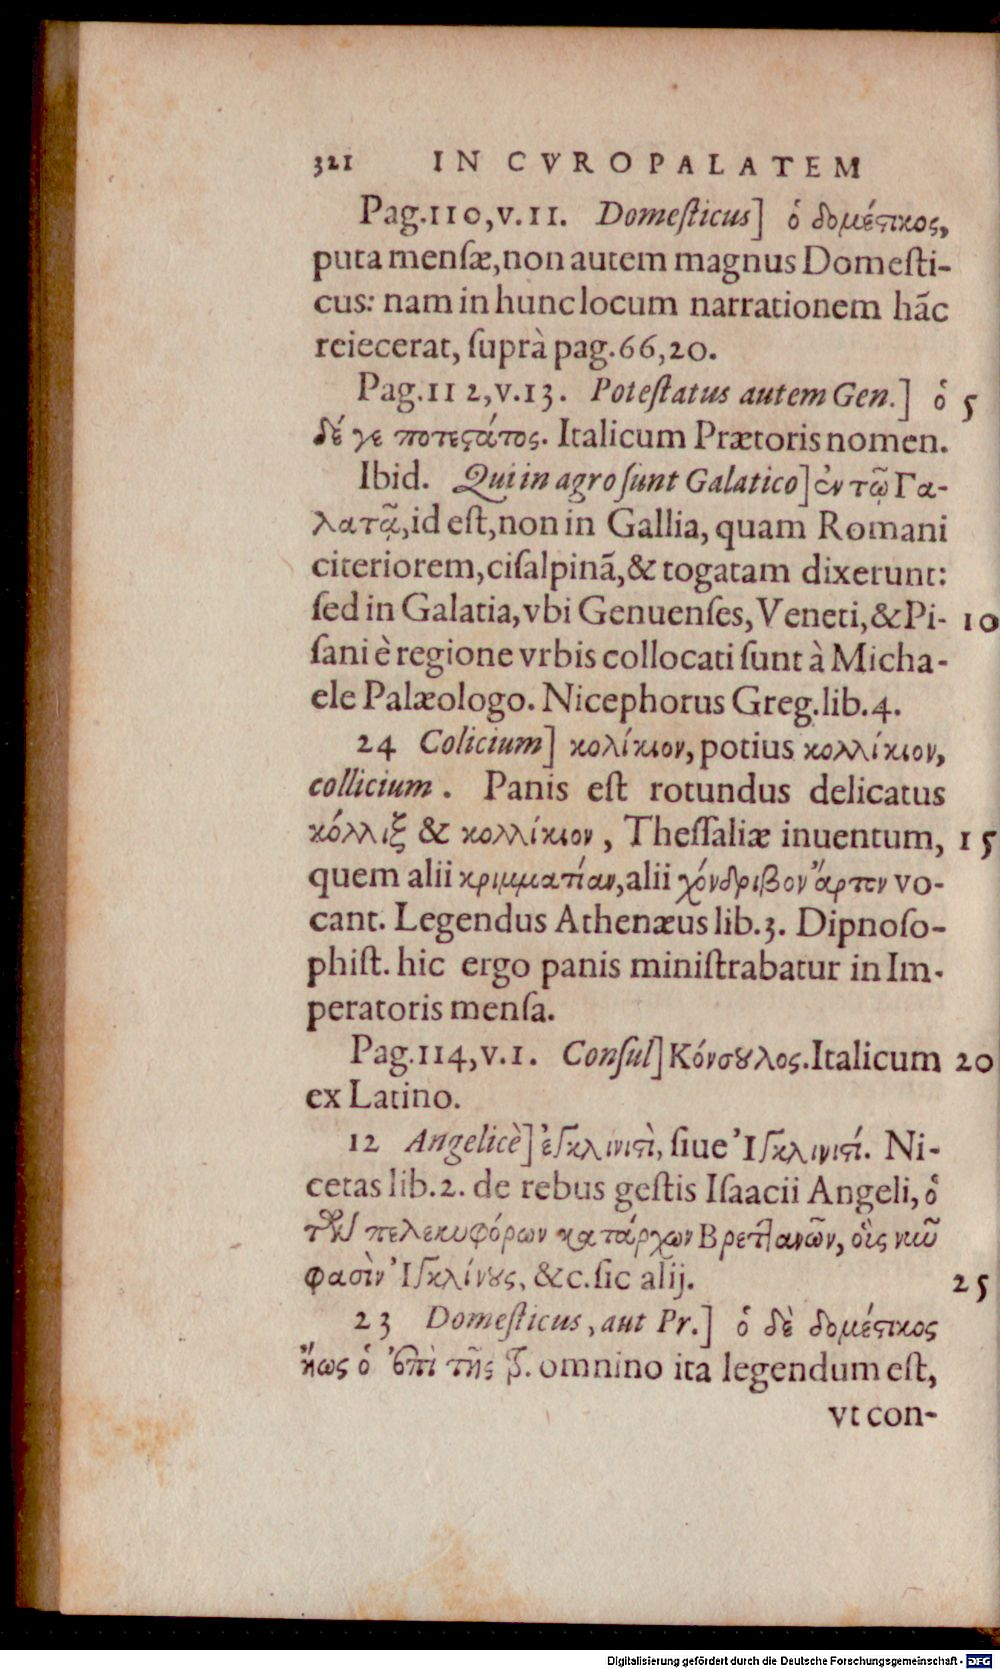 321 IN CVROPALATEM
Pag.110,v.11. Domeſticus] ὁ δομέϛικος,
puta menſæ,non autem magnus Domeſti-
cus: nam in hunc locum narrationem hãc
reiecerat, ſuprà pag.66,20.
Pag.112,v.13. Poteſtatus autem Gen.] ὁ 5
δέ γε ποτεϛάτος. Italicum Prætoris nomen.
Ibid. Qui in agro ſunt Galatico] ἐν τῷ Γα-
λατᾷ, id eſt,non in Gallia, quam Romani
citeriorem,ciſalpinã,& togatam dixerunt:
ſed in Galatia,vbi Genuenſes, Veneti,& Pi- 10
ſani è regione vrbis collocati ſunt à Micha-
ele Palæologo. Nicephorus Greg.lib.4.
24 Colicium] κολίκιον, potius κολλίκιον,
collicium. Panis eſt rotundus delicatus
κόλλιξ & κολλίκιον, Theſſaliæ inuentum, 15
quem alii κριμματίαν,alii χόνδριβον ἄρτον vo-
cant. Legendus Athenæus lib.3. Dipnoſo-
phiſt. hic ergo panis miniſtrabatur in Im-
peratoris menſa.
Pag.114,v.1. Conſul] Κόνσȣλος. Italicum 20
ex Latino.
12 Angelicè] ἐγκλινιϛὶ, ſiue Ἰγκλινιϛί. Ni-
cetas lib.2. de rebus geſtis Iſaacii Angeli, ὁ
τῶν πελεκυφόρων κατάρχων Βρετ]ανῶν, οὓς νῦν
φασὶν Ἰγκλίνȣς, &c. ſic alij. 25
23 Domeſticus, aut Pr.] ὁ δὲ δομέϛικος
ἤως ὁ ἐπὶ τῆς τρ. omnino ita legendum eſt,
vt con-
Digitalisierung gefördert durch die Deutsche Forschungsgemeinschaft - DFG